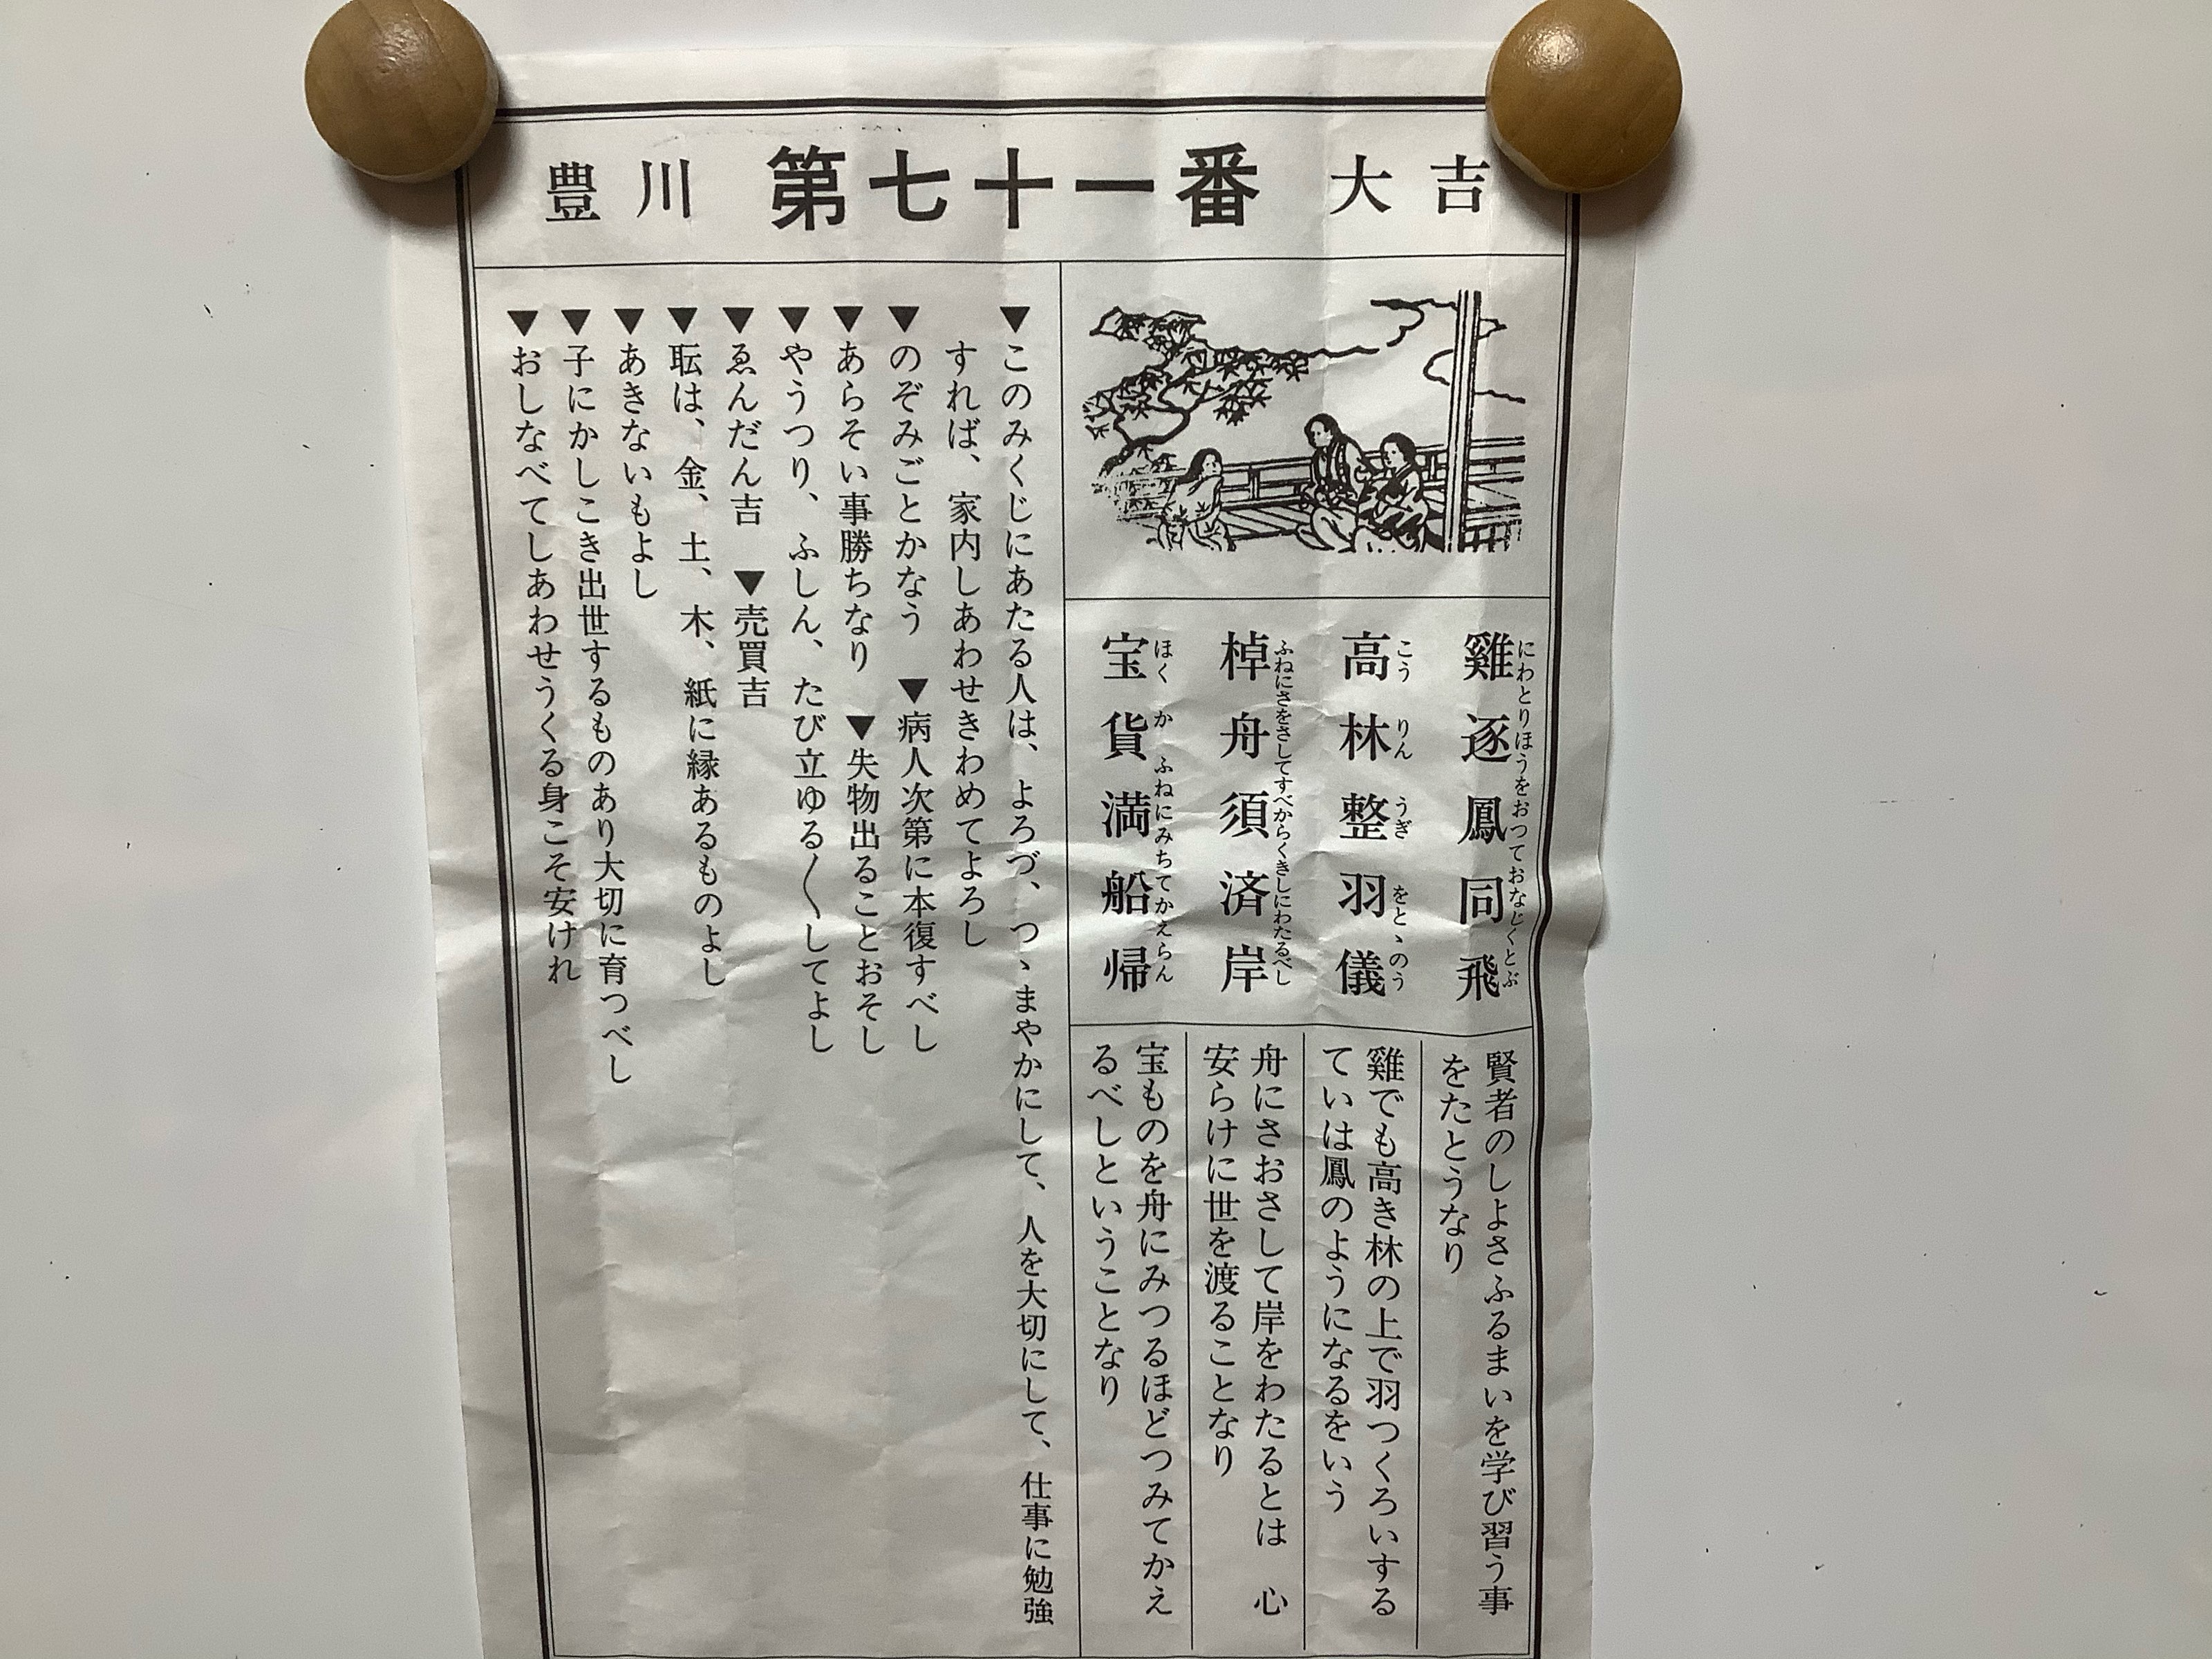 豊川 第七十一番 大吉
雞逐鳳同飛
にわとりほうをおつておなじくとぶ
高林整羽儀
こうりんうぎをとゝのう
棹舟須済岸
ふねにさをさしてすべからくきしにわたるべし
宝貨満船帰
ほくかふねにみちてかえらん
賢者のしよさふるまいを学び習う事
をたとうなり
雞でも高き林の上で羽つくろいする
ていは鳳のようになるをいう
舟にさおさして岸をわたるとは 心
安らけに世を渡ることなり
宝ものを舟にみつるほどつみてかえ
るべしということなり
▼このみくじにあたる人は、よろづ、つゝまやかにして、人を大切にして、仕事に勉強
すれば、家内しあわせきわめてよろし
▼のぞみごとかなう ▼病人次第に本復すべし
▼あらそい事勝ちなり ▼失物出ることおそし
▼やうつり、ふしん、たび立ゆる〱してよし
▼ゑんだん吉 ▼売買吉
▼耺は、金、土、木、紙に縁あるものよし
▼あきないもよし
▼子にかしこき出世するものあり大切に育つべし
▼おしなべてしあわせうくる身こそ安けれ